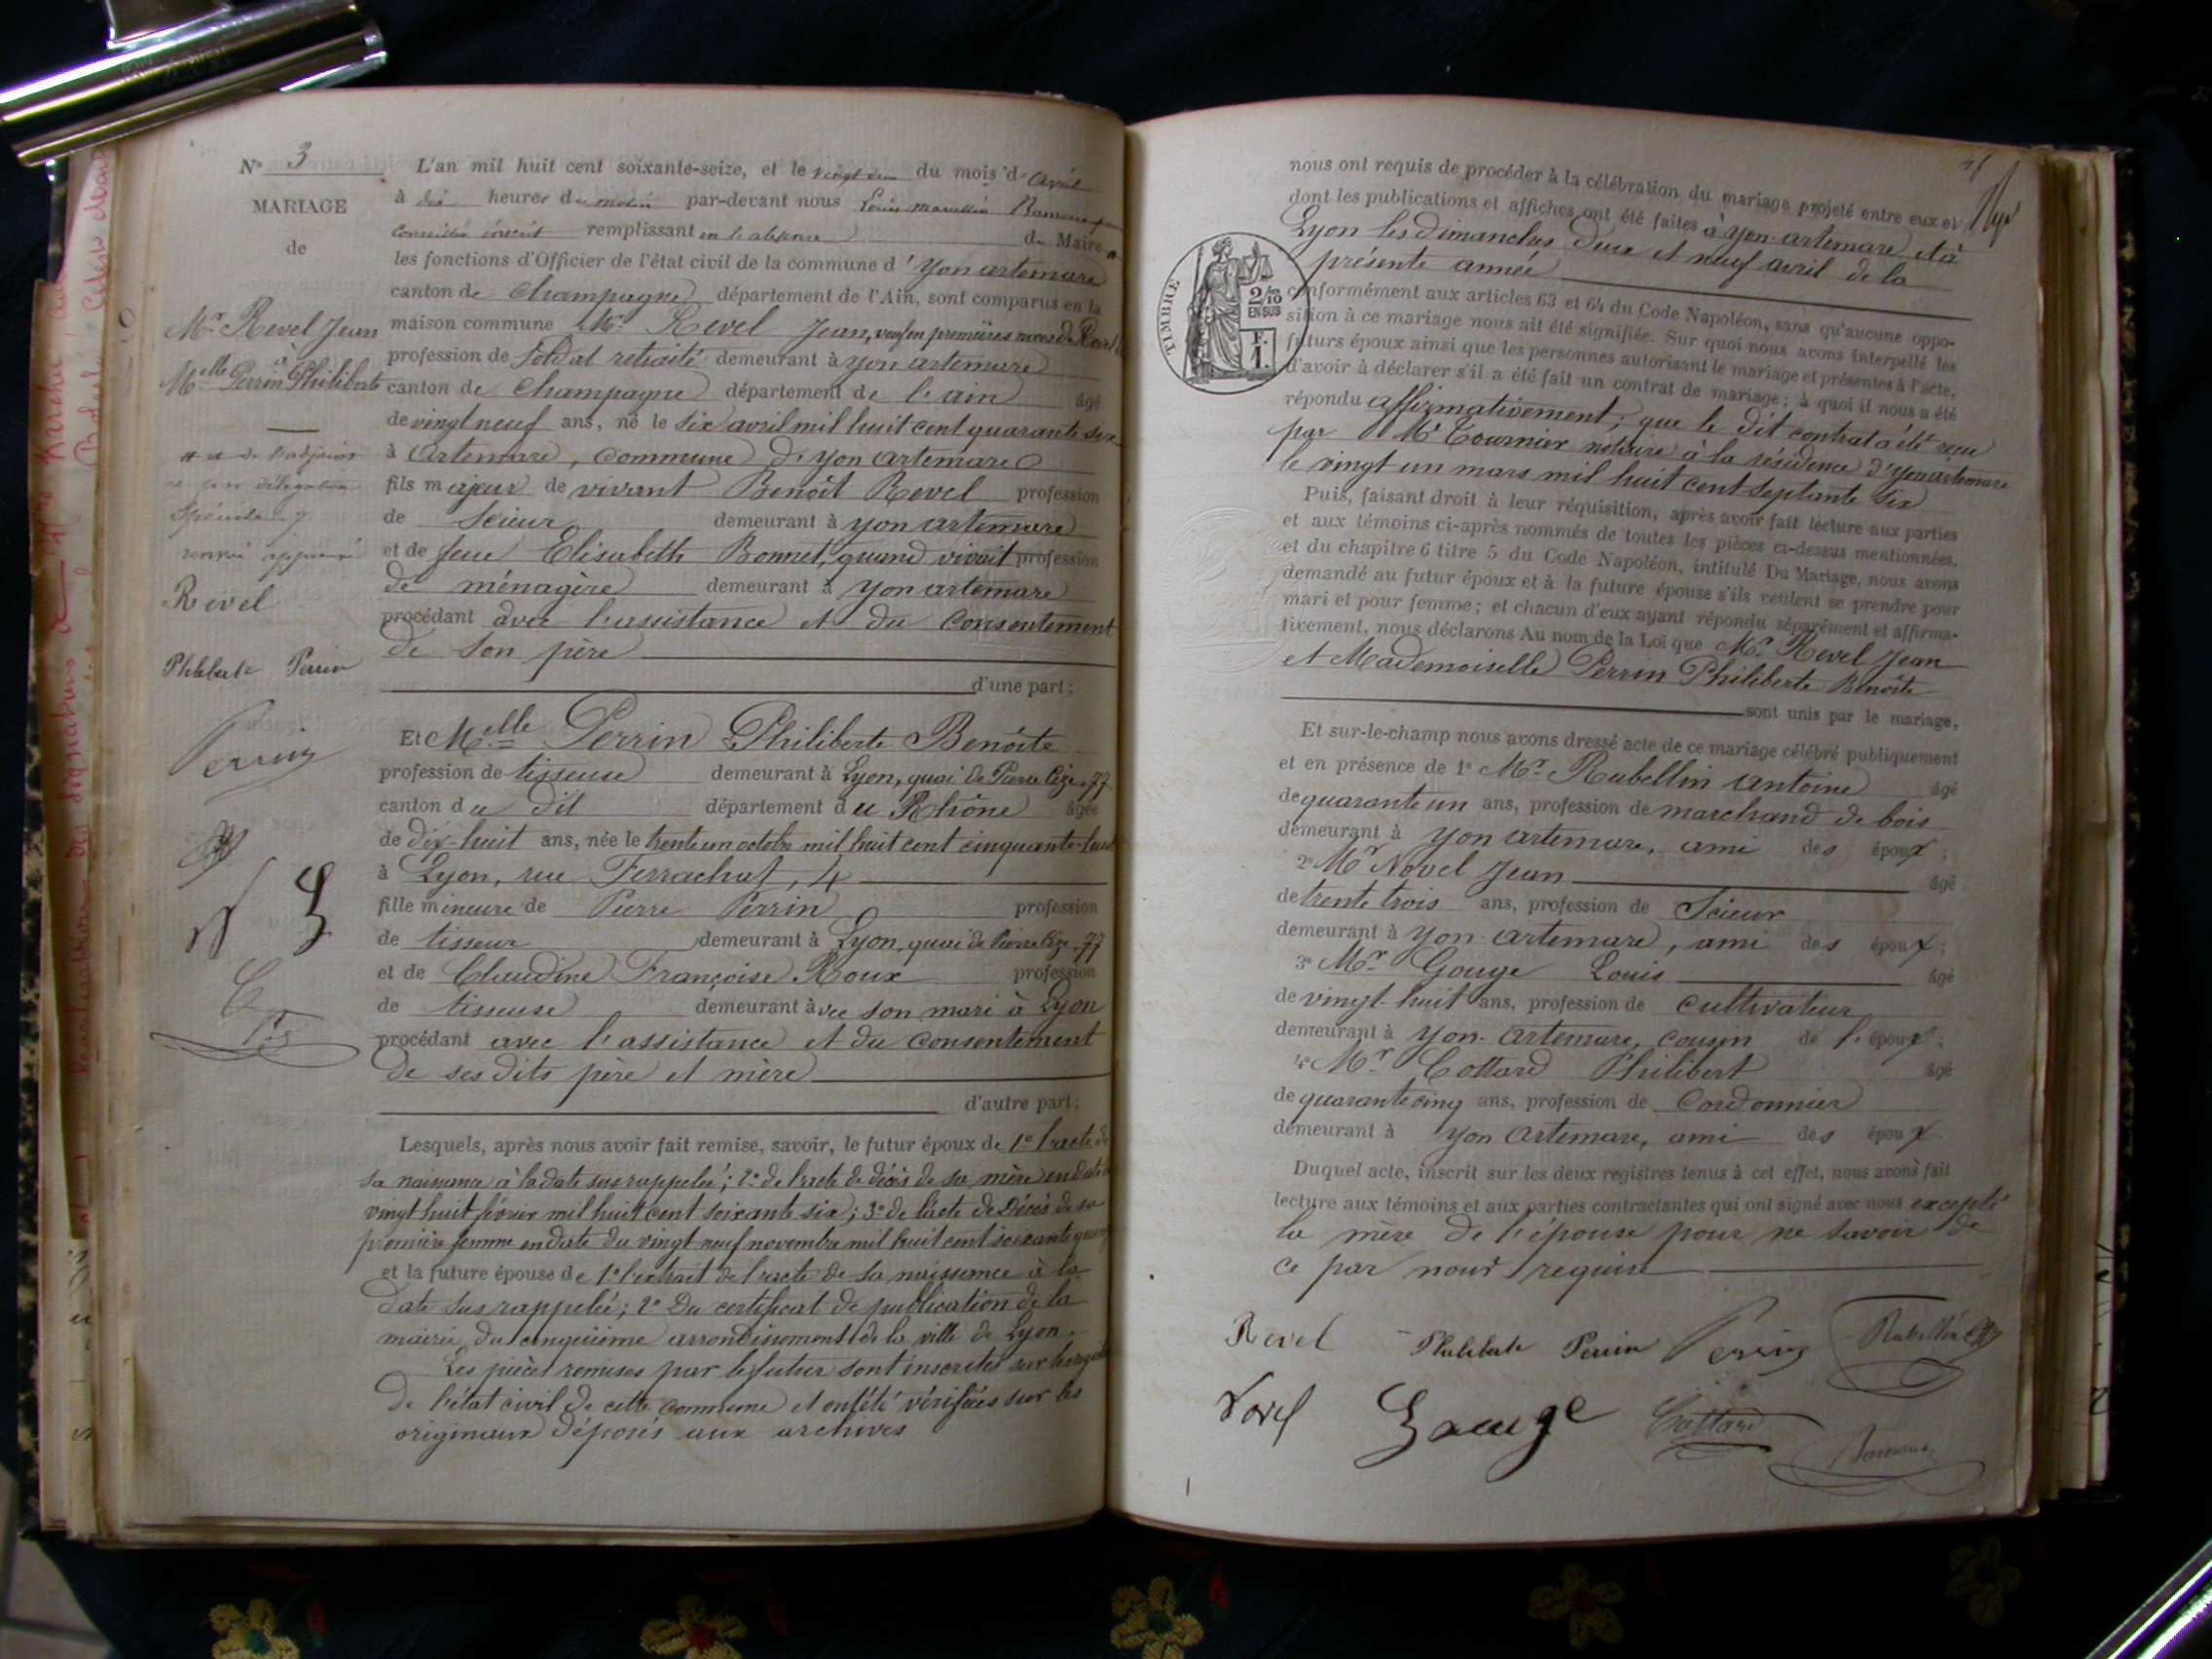 N° 3
MARIAGE
de
Mr Revel Jean
à
Melle Perrin Philiberte
et de l'adjoint
délégation
Spéciale
renvoi approuvé
Revel
Philiberte Perrin
Perrin
L'an mil huit cent soixante-seize, et le vingt du mois d'Avril
à dix heures du matin par-devant nous Louis Ramous
Conseiller inscrit remplissant en l'absence du Maire
les fonctions d'Officier de l'état civil de la commune d'Yon artemare
canton de Champagne département de l'Ain, sont comparus en la
maison commune Mr Revel Jean, veuf en premières noces de
profession de Soldat retraité demeurant à yon artemare
canton de Champagne département de l'ain âgé
de vingt neuf ans, né le six avril mil huit cent quarante six
à Artemare, Commune d'yon artemare
fils majeur de vivant Benoît Revel profession
de Scieur demeurant à yon artemare
et de feue Elisabeth Bonnet, quand vivait profession
de ménagère demeurant à yon artemare
procédant avec l'assistance et du Consentement
de son père
d'une part;
Et Melle Perrin Philiberte Benoîte
profession de tisseuse demeurant à Lyon, quai de Pierre Cize, 77
canton du dit département du Rhône âgée
de dix-huit ans, née le trente un octobre mil huit cent cinquante-sept
à Lyon, rue Ferrachat, 4
fille mineure de Pierre Perrin profession
de tisseur demeurant à Lyon, quai de Pierre Cize, 77
et de Claudine Françoise Roux profession
de tisseuse demeurant avec son mari à Lyon
procédant avec l'assistance et du consentement
de ses dits père et mère
d'autre part;
Lesquels, après nous avoir fait remise, savoir, le futur époux de 1° l'acte de
sa naissance à la date susrappelée; 2° de l'acte de décès de sa mère en date du
vingt huit février mil huit cent soixante six; 3° de l'acte de Décès de sa
première femme en date du vingt neuf novembre mil huit cent soixante
et la future épouse de 1° l'extrait de l'acte de sa naissance à la
date susrappelée; 2° Du certificat de publication de la
mairie du cinquième arrondissement de la ville de Lyon.
Les pièces remises par le futur sont inscrites sur les registres
de l'état civil de cette commune et ont été vérifiées sur les
originaux déposés aux archives
nous ont requis de procéder à la célébration du mariage projeté entre eux et
dont les publications et affiches ont été faites à Yon-artemare et à
Lyon les dimanches deux et neuf avril de la
présente année
conformément aux articles 63 et 64 du Code Napoléon, sans qu'aucune oppo-
sition à ce mariage nous ait été signifiée. Sur quoi nous avons interpellé les
futurs époux ainsi que les personnes autorisant le mariage et présentes à l'acte,
d'avoir à déclarer s'il a été fait un contrat de mariage; à quoi il nous a été
répondu affirmativement; que le dit contrat a été reçu
par Me Tournier notaire à la résidence d'yon artemare
le vingt un mars mil huit cent septante six
Puis, faisant droit à leur réquisition, après avoir fait lecture aux parties
et aux témoins ci-après nommés de toutes les pièces ci-dessus mentionnées,
et du chapitre 6 titre 5 du Code Napoléon, intitulé Du Mariage, nous avons
demandé au futur époux et à la future épouse s'ils veulent se prendre pour
mari et pour femme; et chacun d'eux ayant répondu séparément et affirma-
tivement, nous déclarons Au nom de la Loi que Mr Revel Jean
et Mademoiselle Perrin Philiberte Benoîte
sont unis par le mariage,
Et sur-le-champ nous avons dressé acte de ce mariage célébré publiquement
et en présence de 1° Mr Rubellin Antoine âgé
de quarante un ans, profession de marchand de bois
demeurant à yon artemare, ami des époux;
2° Mr Novel Jean âgé
de trente trois ans, profession de Scieur
demeurant à yon-artemare, ami des époux;
3° Mr Gouge Louis âgé
de vingt-huit ans, profession de cultivateur
demeurant à yon-artemare, cousin de l'époux;
4° Mr Cottard Philibert âgé
de quarante cinq ans, profession de Cordonnier
demeurant à yon Artemare, ami des époux.
Duquel acte, inscrit sur les deux registres tenus à cet effet, nous avons fait
lecture aux témoins et aux parties contractantes qui ont signé avec nous excepté
la mère de l'épouse pour ne savoir de
ce par nous requise
Revel Philiberte Perrin Perrin Rubellin
Novel Gouge Cottard Ramous
TIMBRE
2/10
EN SUS
F.
1.